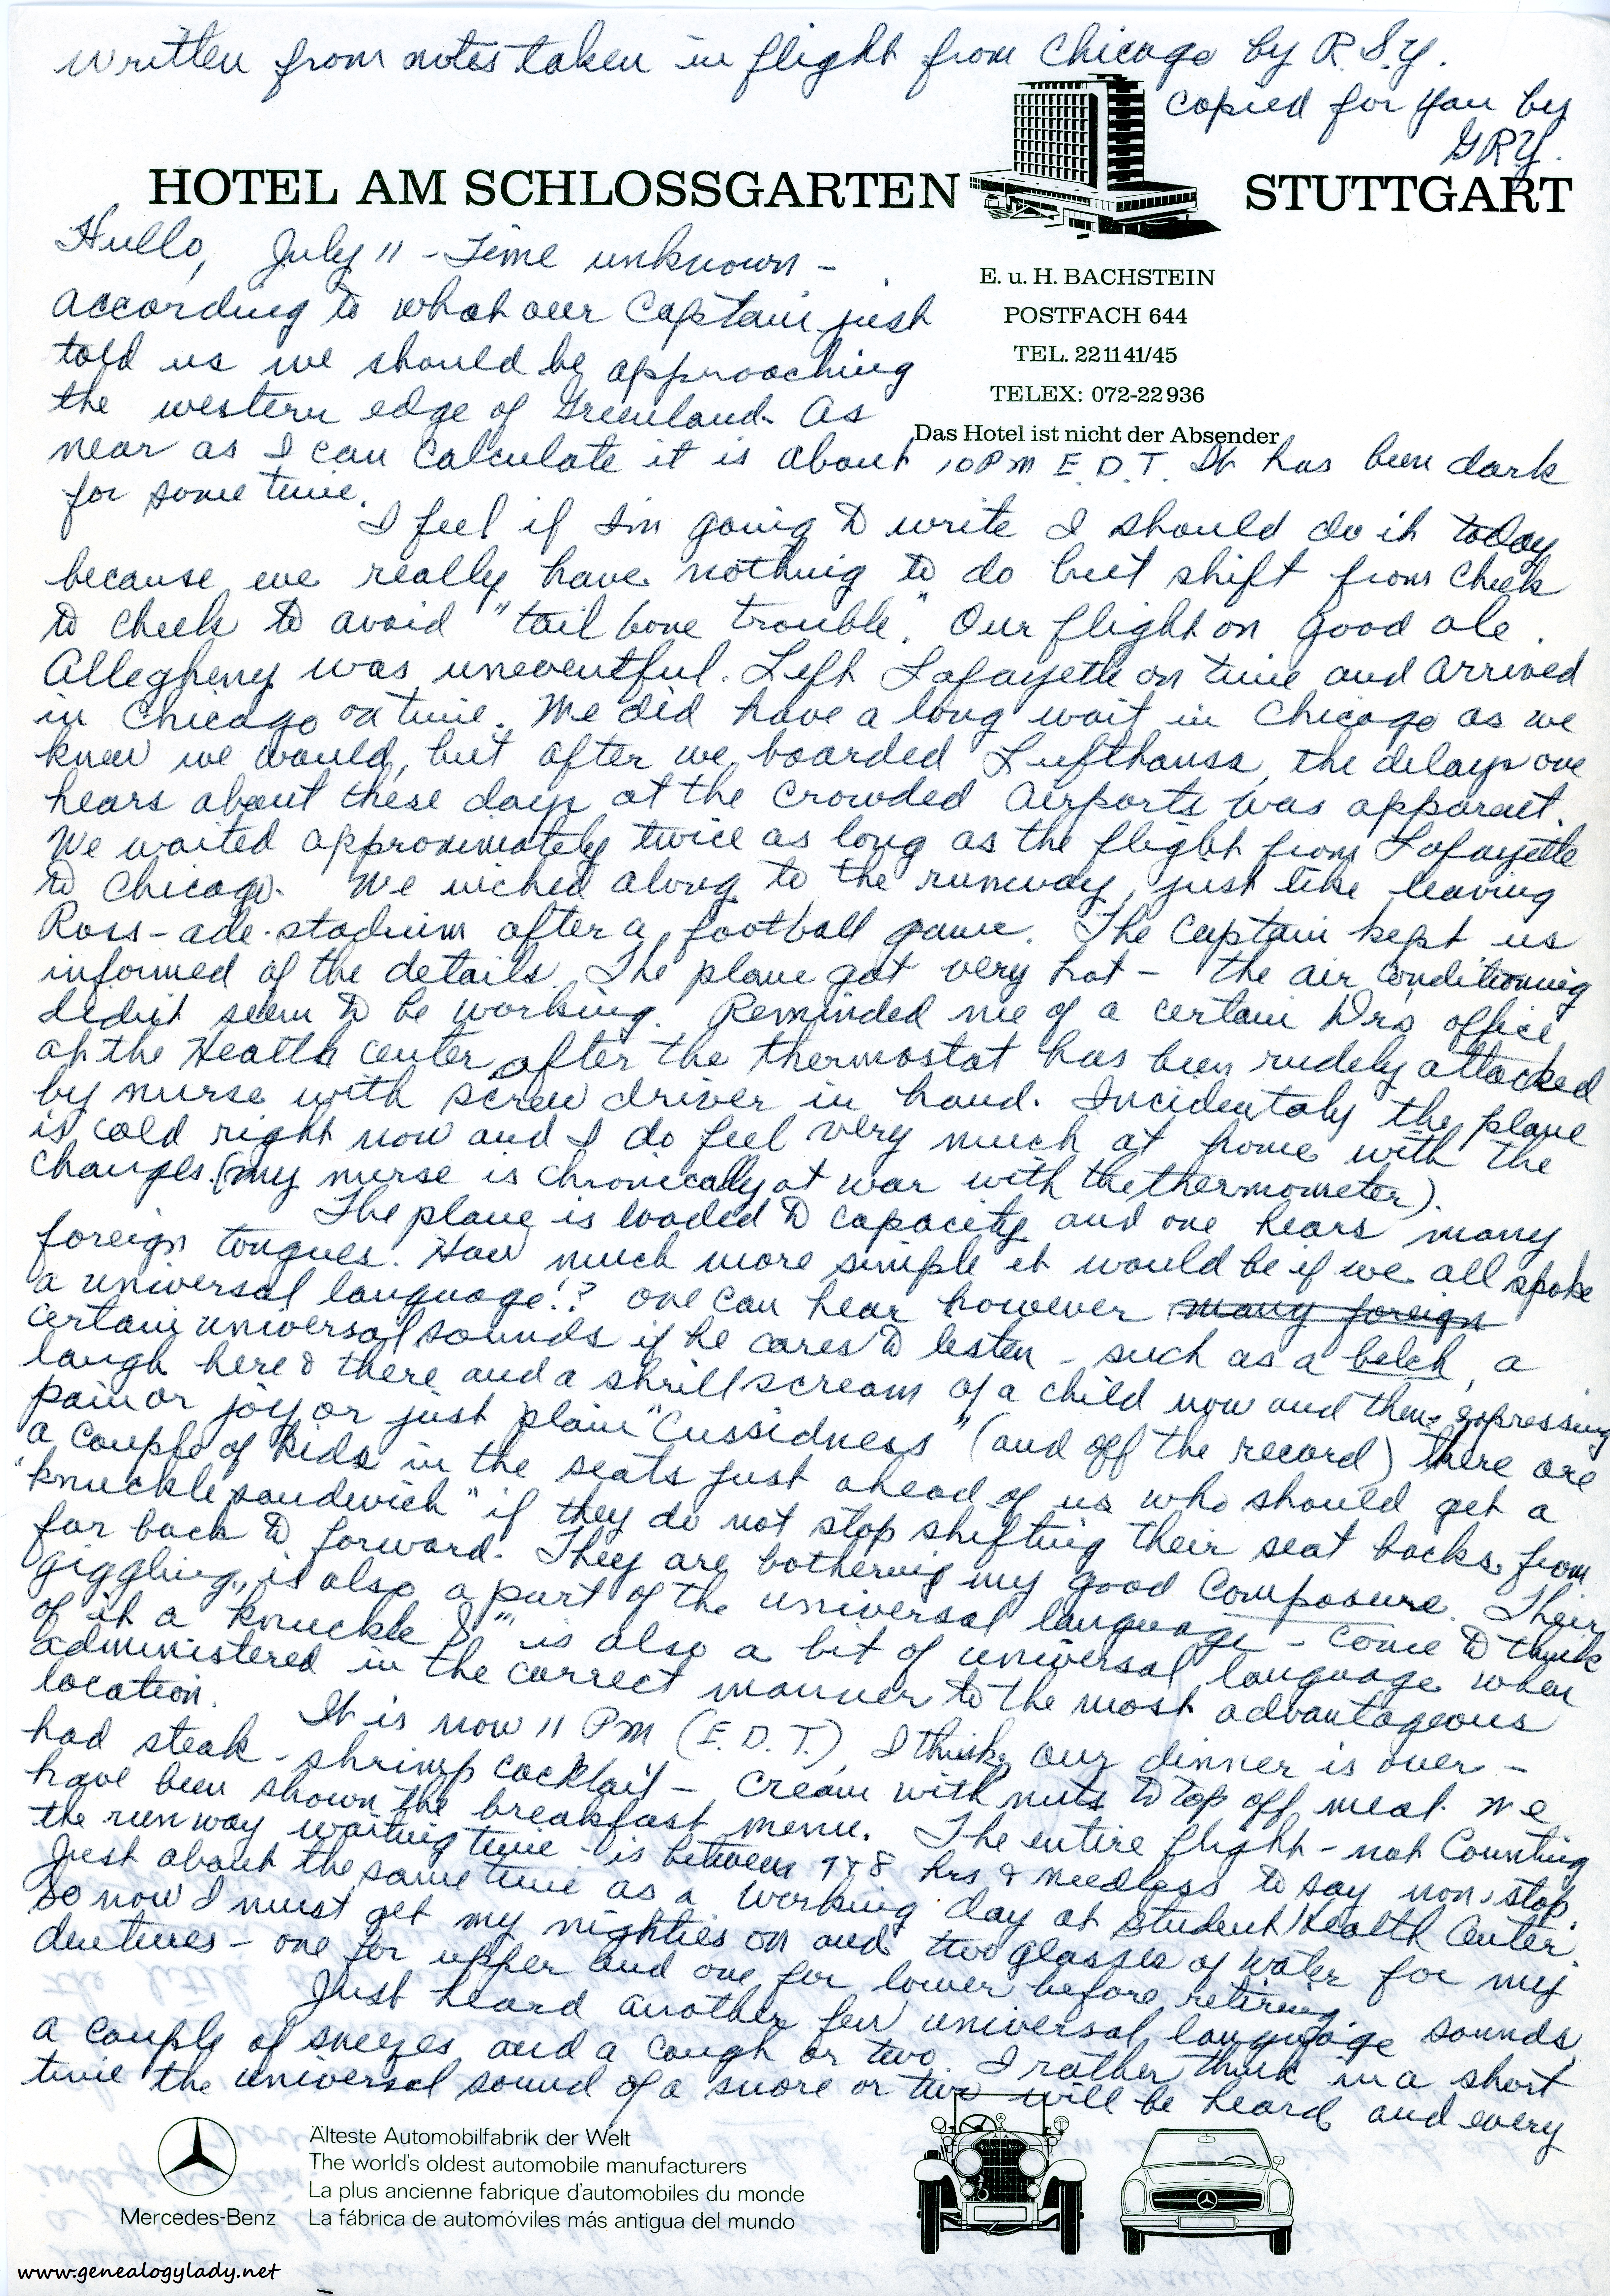 Written from notes taken in flight from Chicago by R.S.Y.
copied for you by
GRY.
HOTEL AM SCHLOSSGARTEN STUTTGART
E. u. H. BACHSTEIN
POSTFACH 644
TEL. 221141/45
TELEX: 072-22936
Das Hotel ist nicht der Absender
Hullo, July 11 - Time unknown -
According to what our Captain just
told us we should be approaching
the western edge of Greenland. As
near as I can calculate it is about 10 PM E.D.T. It has been dark
for some time.
I feel if I'm going to write I should do it today
because we really have nothing to do but shift from cheek
to cheek to avoid "tail bone trouble." Our flight on good ole
Allegheny was uneventful. Left Lafayette on time and arrived
in Chicago on time. We did have a long wait in Chicago as we
knew we would, but after we boarded Lufthansa, the delays one
hears about these days at the crowded airports was apparent.
We waited approximately twice as long as the flight from Lafayette
to Chicago. We inched along to the runway, just like leaving
Ross-ade-stadium after a football game. The Captain kept us
informed of the details. The plane got very hot - the air conditioning
didn't seem to be working. Reminded me of a certain Dr's office
at the Health center after the thermostat has been rudely attacked
by nurse with screw driver in hand. Incidentaly the plane
is cold right now and I do feel very much at home with the
changes. (my nurse is chronically at war with the thermometer).
The plane is loaded to capacity and one hears many
foreign tongues. How much more simple it would be if we all spoke
a universal language!? One can hear however many foreign
certain universal sounds if he cares to listen - such as a belch, a
laugh here & there and a shrill scream of a child now and then expressing
pain or joy or just plain "Cussidness" (and off the record) there are
a couple of kids in the seats just ahead of us who should get a
"knuckle sandwich" if they do not stop shifting their seat backs from
far back to forward. They are bothering my good composure. Their
giggling, is also a part of the universal language - come to think
of it a "knuckle S" is also a bit of universal language when
administered in the correct manner to the most advantageous
location.
It is now 11 PM (E.D.T.), I think, our dinner is over -
had steak - shrimp cocktail - cream with nuts to top off meal. We
have been shown the breakfast menu. The entire flight - not counting
the runway waiting time - is between 7 & 8 hrs & needless to say non-stop.
Just about the same time as a working day at Student Health Center.
So now I must get my nighties on and two glasses of water for my
dentures - one for upper and one for lower before retiring.
Just heard another few universal language sounds,
a couple of sneezes and a cough or two. I rather think in a short
time the universal sound of a snore or two will be heard and every
Mercedes-Benz
Älteste Automobilfabrik der Welt
The world's oldest automobile manufacturers
La plus ancienne fabrique d'automobiles du monde
La fábrica de automóviles más antigua del mundo
www.genealogylady.net